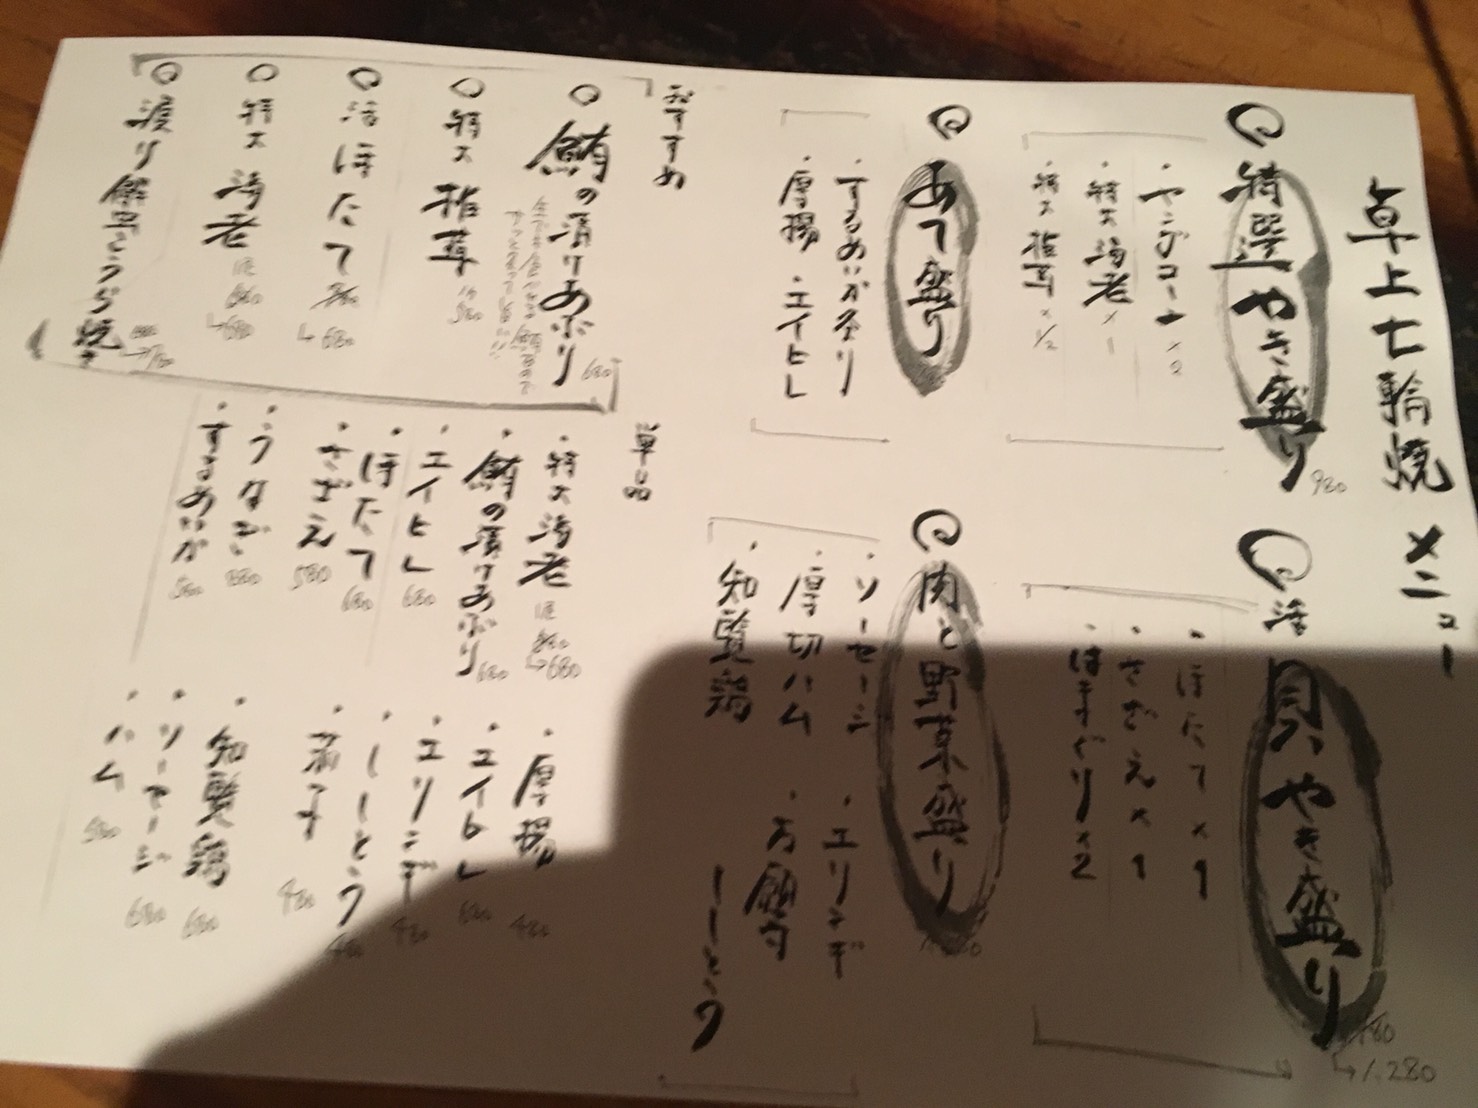 卓上七輪焼 メニュー
特選やき盛り 980
・やングコーン×2
・特大海老×1
・特大椎茸×1/2
活貝やき盛り 1,280
・ほたて×1
・さざえ×1
・はまぐり×2
あて盛り
・するめいか炙り
・厚揚 ・エイヒレ
肉と野菜盛り
・ソーセージ ・エリンギ
・厚切ハム
・知覧鶏 ししとう
おすすめ
鮪の漬けあぶり 680
特大椎茸 580
活ほたて 780→680
特大海老 →680
渡り蟹こうら焼き
単品
・特大海老 →680
・鮪の漬けあぶり 680
・エイヒレ 680
・ほたて 680
・さざえ 580
・うなぎ 880
・するめいか 580
・厚揚 480
・エイヒレ 680
・エリンギ 480
・ししとう 480
・茄子 480
・知覧鶏 680
・ソーセージ 680
・ハム 580